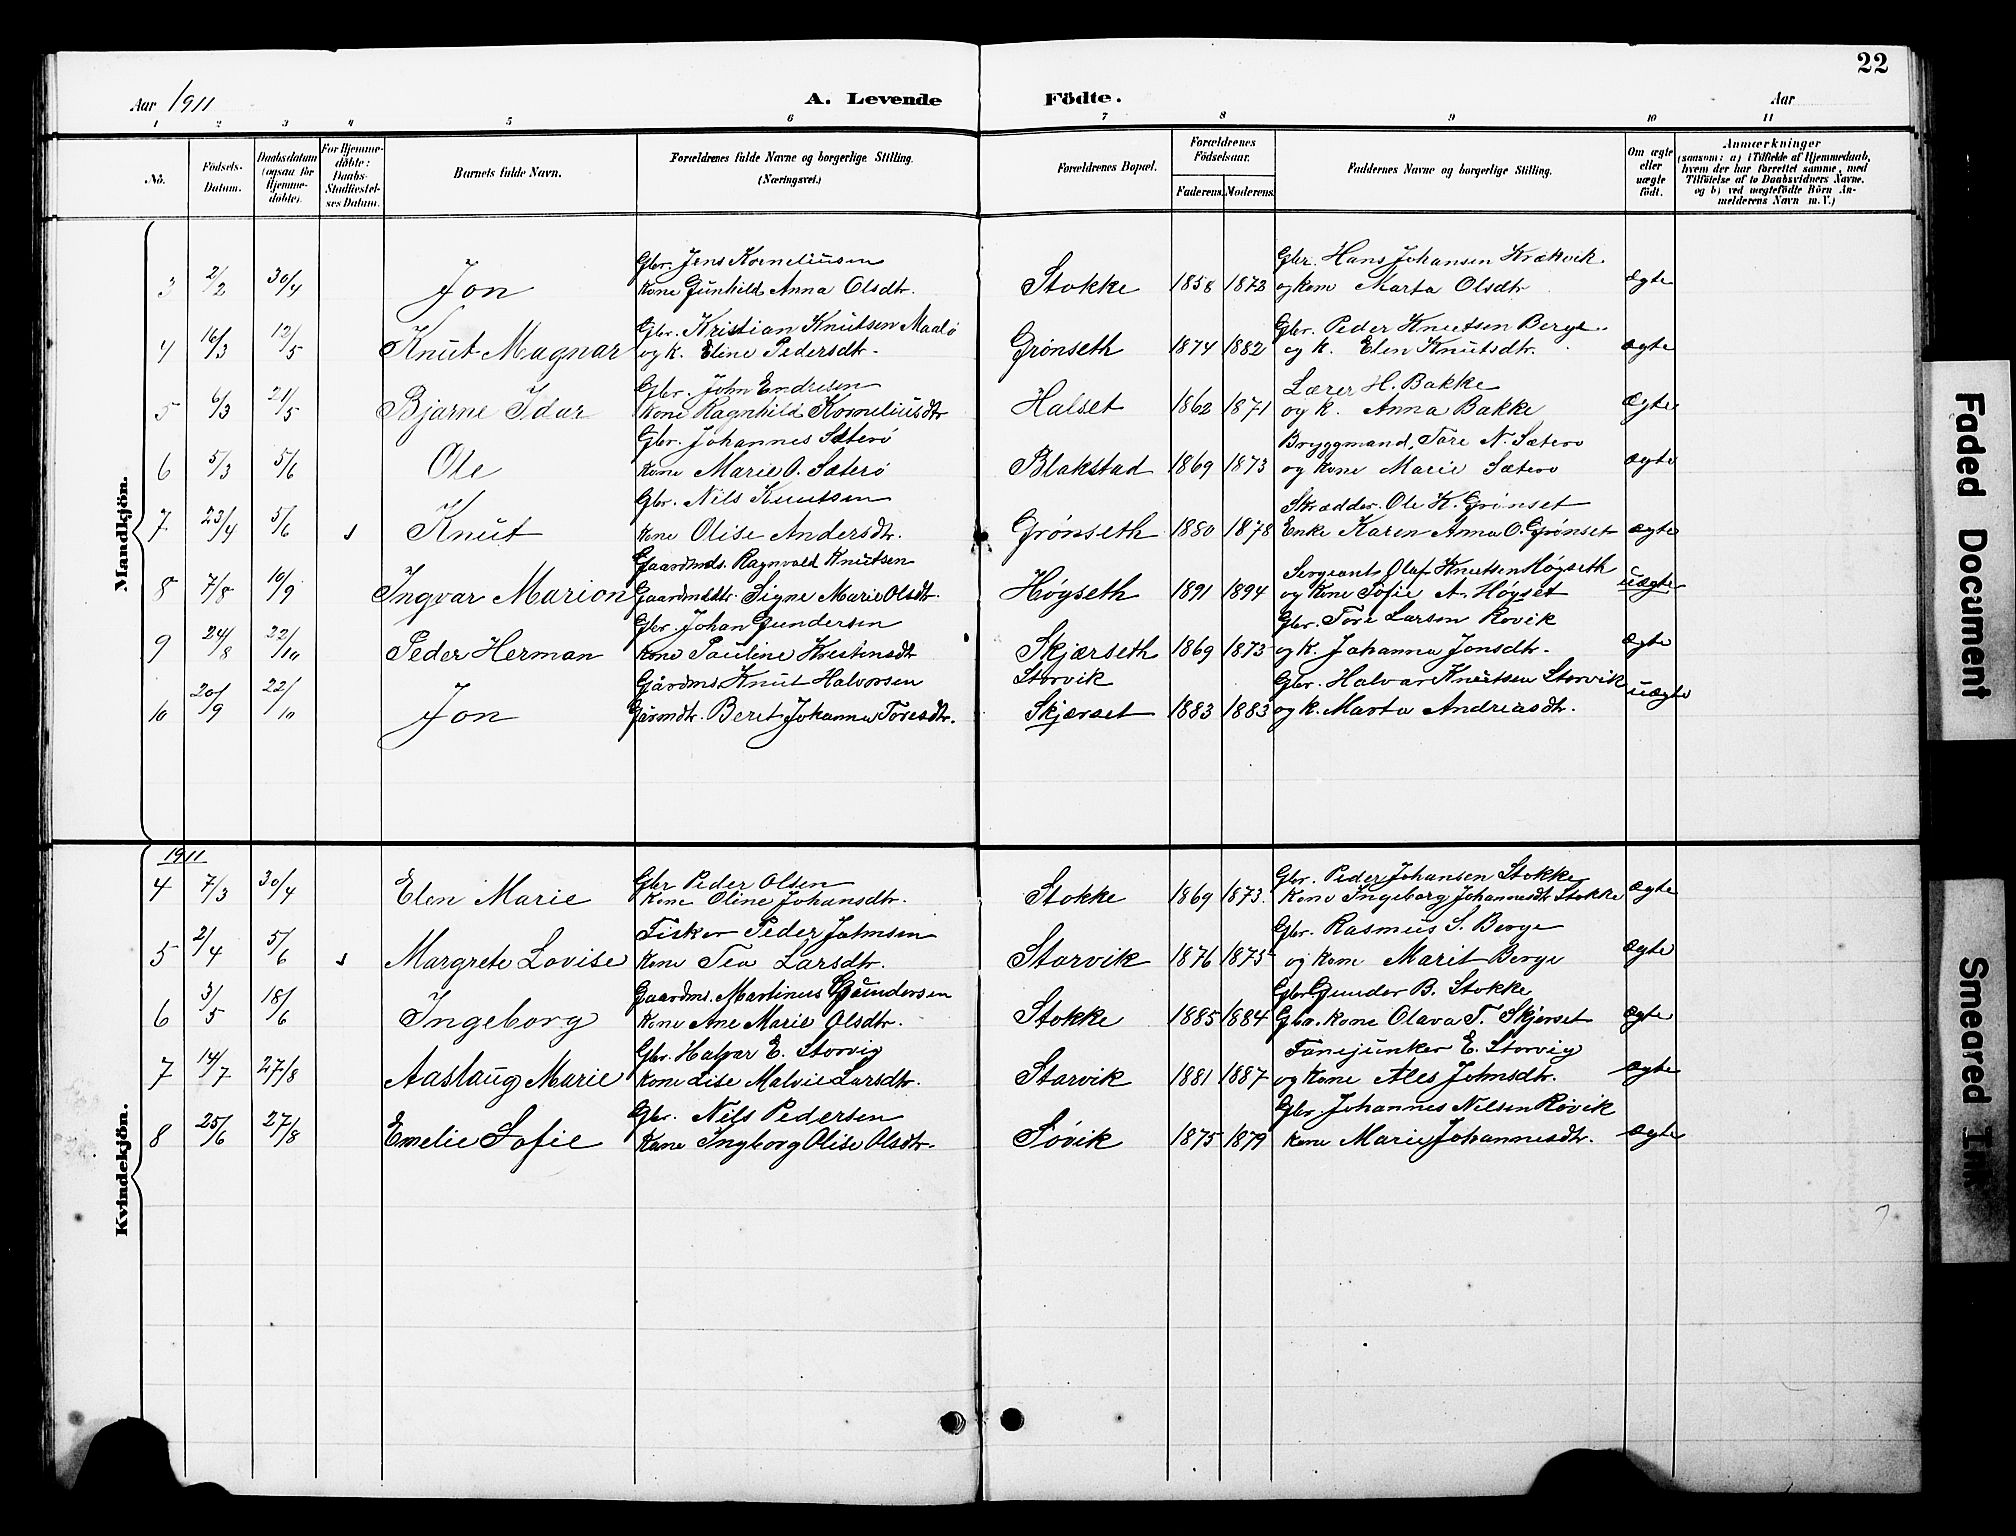 22
Aar 1911
A. Levende
Födte.
Aar
1 2 3 4 5 6 7 8 9 10 11
No.
Födsels-
Datum.
Daabsdatum
(ogsaa for
Hjemme-
döbte).
For Hjemme-
döbte:
Daabs-
Stadfæstel-
ses Datum.
Barnets fulde Navn.
Forældrenes fulde Navne og borgerlige Stilling.
(Næringsvei.)
Forældrenes Bopæl.
Forældrenes
Födselsaar.
Faderens. Moderens.
Faddernes Navne og borgerlige Stilling.
Om ægte
eller
uægte
født.
Anmærkninger
(saasom: a) i Tilfælde af Hjemmedaab,
hvem der har forrettet samme, med
Tilföielse af to Daabsvidners Navne.
og b) ved uægtefödte Börn An-
melderens Navn m. V.)
Mandkjön.
Gbr. Jens Korneliusen
Gbr. Hans Johansen Krækvik
3 2/2 30/4 Jon kone Gunhild Anna Olsdtr. Stokke 1858 1872 og kone Marta Olsdtr ægte
Gbr. Kristian Knutsen Maalö
Gbr. Peder Knutsen Berge
4 16/3 12/5 Knut Magnar og k. Eline Pedersdtr. Grönseth 1874 1882 og k. Elen Knutsdtr. ægte
Gbr. John Endresen
Lærer H. Bakke
5 6/3 21/5 Bjarne Idar kone Ragnhild Korneliusdtr Halset 1862 1871 og k. Anna Bakke Ægte
Gbr. Johannes Sæterö
Bryggmand, Tore N. Sætero
6 5/3 5/6 Ole kone Marie O. Sæterö Blakstad 1869 1873 og kone Marie Sætero ægte
Gbr. Nils Knutsen
Skrædder Ole K. Grönset
7 23/4 5/6 s Knut kone Olise Andersdtr. Grönseth 1880 1878 Enke Karen Anna O. Grönset ægte
Gaardmds. Ragnvald Knutsen
Sergeant Olaf Knutsen Höyseth
8 7/8 10/9 Ingvar Marion Gaardmdstr. Signe Marie Olsdtr. Höyseth 1891 1894 og kone Sofie A. Höyset uægte
Gbr. Johan Gundersen
Gbr. Tore Larsen Rövik
9 24/8 22/10 Peder Herman kone Pauline Kristensdtr Skjærseth 1869 1873 og k. Johanna Jonsdtr. ægte
Gårdms. Knut Halvorsen Storvik
Gbr. Halvar Knutsen Storvik
10 20/9 22/10 Jon Gårmdtr. Beret Johanna Toresdtr. Skjærset 1883 1883 og k. Marta Andreasdtr. uægte
Kvindekjön.
1911
Gbr Peder Olsen
Gbr. Peder Johansen Stokke
4 7/3 30/4 Elen Marie Kone Oline Johansdtr. Stokke 1869 1873. Kone Ingeborg Johannesdtr Stokke ægte
Fisker Peder Johnsen
Gbr. Rasmus S. Berge
5 2/4 5/6 s Margrete Lovise Kone Tea Larsdtr. Storvik 1876 1875 og kone Marit Berge ægte
Gaardms. Martinus Gundersen
Gbr Gunder B. Stokke
6 3/5 18/6 Ingeborg Kone Ane Marie Olsdtr. Stokke 1885 1884 Gbr. kone Olava T. Skjerset ægte
Gbr. Halvar E. Storvig
Fanejunker E. Storvig
7 14/7 27/8 Aaslaug Marie Kone Lise Malvie Larsdtr. Storvik 1881 1887 og kone Ales Johnsdtr. ægte
Gbr. Nils Pedersen
Gbr Johannes Nilsen Rövik
8 25/6 27/8 Emelie Sofie Kone Ingborg Olise Olsdtr. Sövik 1875 1879 kone Marie Johannesdtr. ægte
Faded Document
Smeared Ink